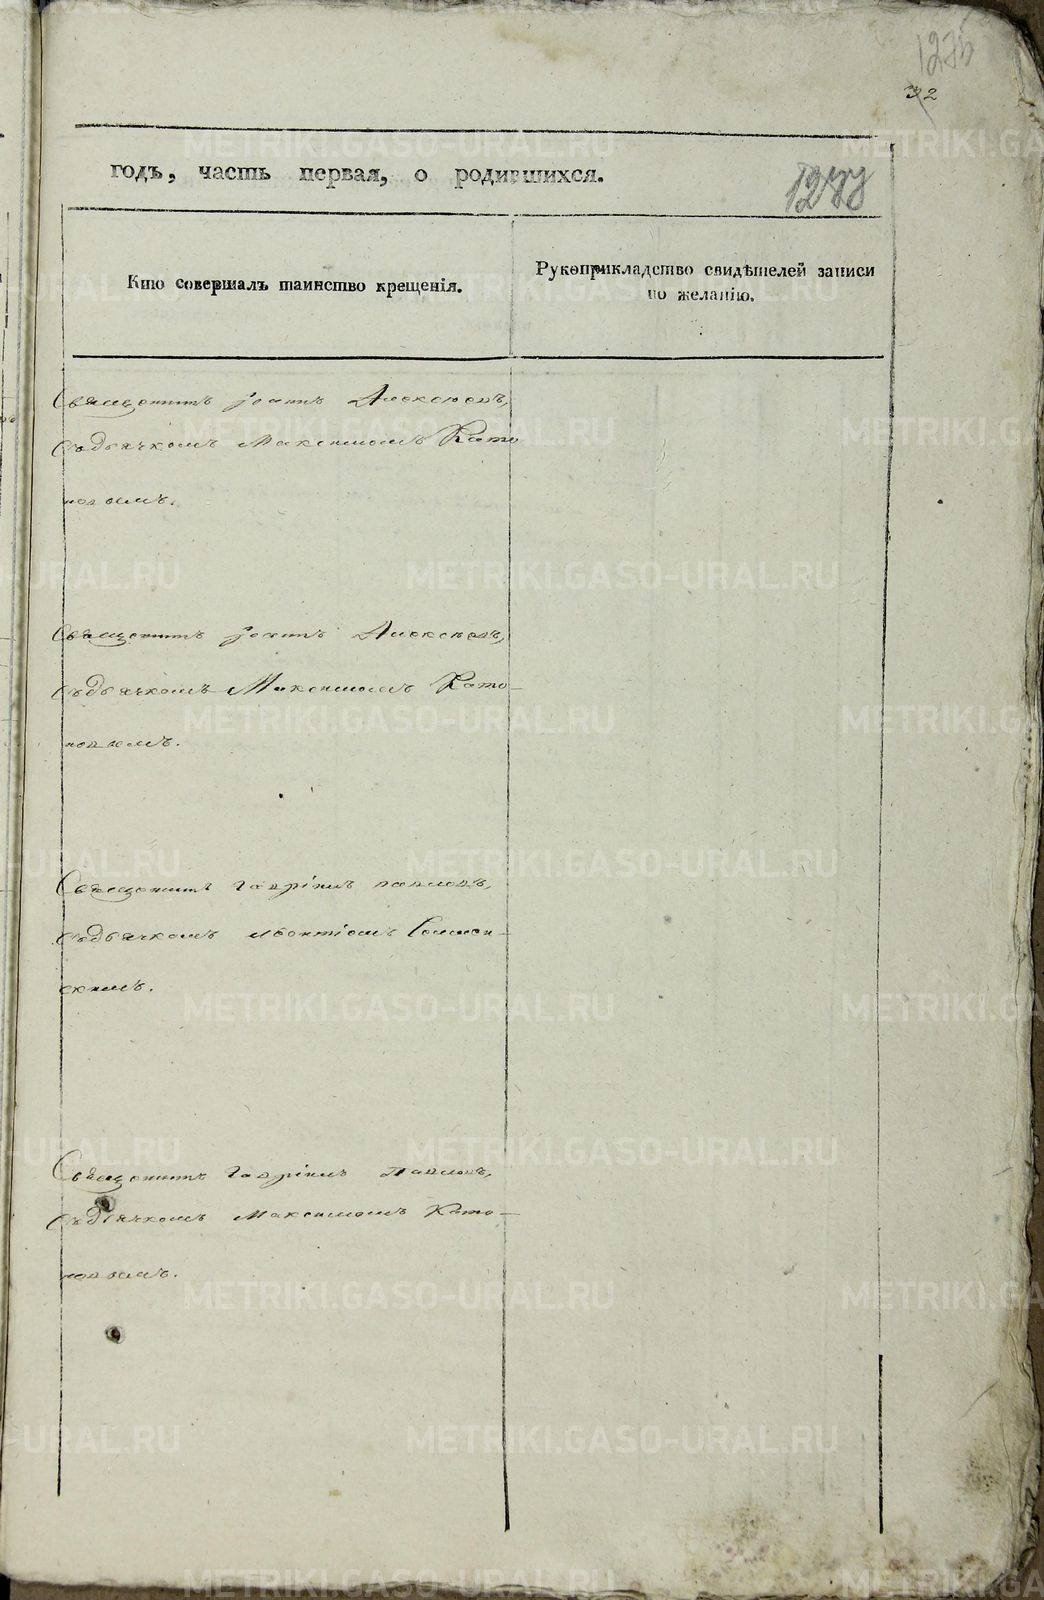 1275
32
годъ, часть первая, о родившихся.
1277
Кто совершалъ таинство крещенія.
Рукоприкладство свидѣтелей записи
по желанію.
Священникъ Іоаннъ Алексѣевъ,
съ дьячкомъ Максимомъ Като
новымъ.
Священникъ Іоаннъ Алексѣевъ,
съ дьячкомъ Максимомъ Като-
новымъ.
Священникъ Гавріилъ Павловъ,
съ дьячкомъ Леонтіомъ
скимъ.
Священникъ Гавріилъ Павловъ,
съ дьячкомъ Максимомъ Като-
новымъ.
METRIKI.GASO-URAL.RU